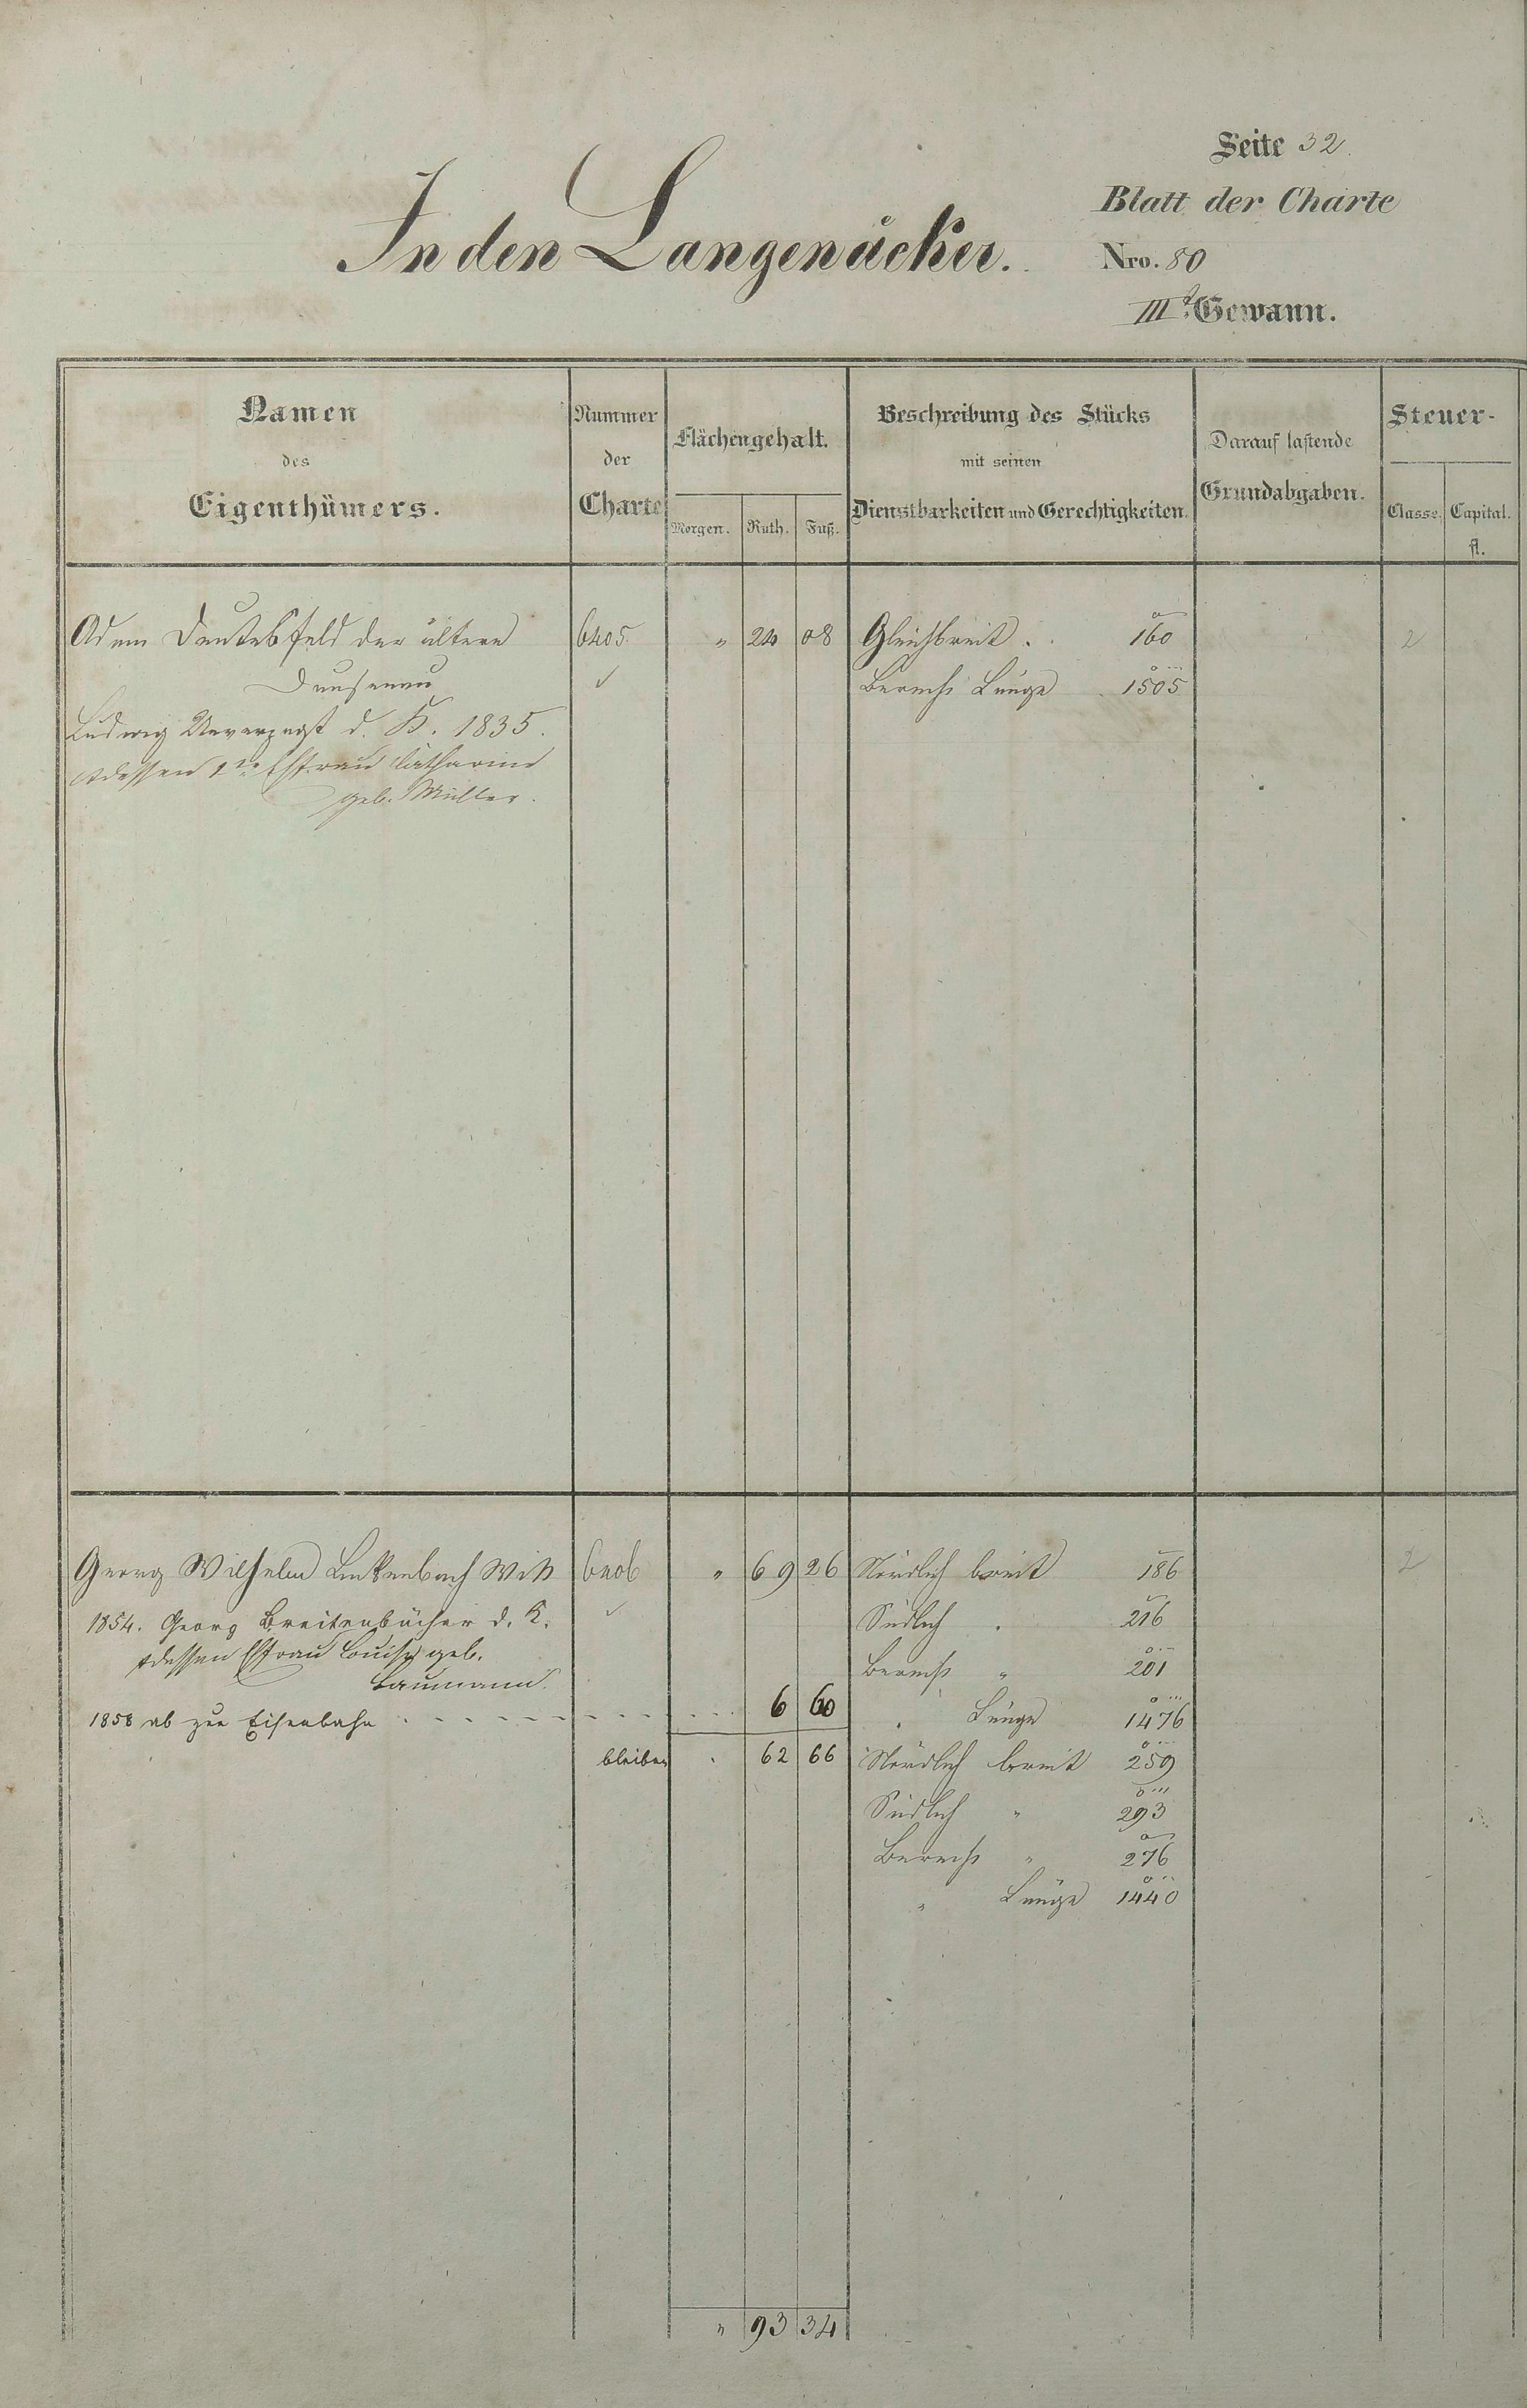 Seite 32.
Blatt der Charte
In den Langenäcker.
Nro. 80
III.t Gewann.
Namen
des
Eigenthümers.
Nummer
der
Charte
Flächengehalt.
Morgen. Ruth. Fuß.
Beschreibung des Stücks
mit seinen
Dienstbarkeiten und Gerechtigkeiten.
Darauf lastende
Grundabgaben.
Steuer-
Classe. Capital.
fl.
Adam der ältere 6405 " 24 08 Gleichbreit . . 160 2
Dausenau Berechn Länge 1505
Ludwig Unverzagt d. K. 1835.
dessen Ehefrau Catharine
geb. Müller.
Georg Wilhelm Linkenbach Witt 6406 " 69 26 Nördlich breit 186 2
1854. Georg Breitenbücher d. K. Südlich " 216
dessen Efrau Louise geb. Berech " 201
Baumann.
1858 ab zur Eisenbahn . . . . . . . . . . 6 60 " Länge 1476
bleiben " 62 66 Nördlich breit 259
Südlich " 293
Berech " 276
" Länge 1440
" 93 34